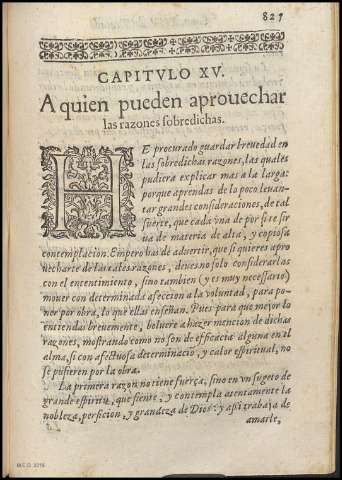 827
CAPITVLO XV.
A quien pueden aprouechar
las razones sobredichas.
HE procurado guardar breuedad en
las sobredichas razones, las quales
pudiera explicar mas a la larga:
porque aprendas de lo poco leuan-
tar grandes consideraciones, de tal
suerte, que cada vna de por si se sir
ua de materia de alta, y copiosa
contemplacion. Empero has de aduertir, que si quieres apro
uecharte de las tales razones, deues no solo considerarlas
con el entendimiento, sino tambien (y es muy necessario)
mouer con determinada afeccion a la voluntad, para po-
ner por obra, lo que ellas enseñan. Pues para que mejor lo
entiendas breuemente, boluere a hazer mencion de dichas
razones, mostrando como no son de eficacia alguna en el
alma, si con afectuosa determinaciõ, y calor espiritual, no
se pusieren por la obra.
La primera razon no tiene fuerça, sino en vn sugeto de
grande espiritu, que siente, y contempla atentamente la
nobleza, perficion, y grandeza de Dios: y assi trabaja de
amarle,